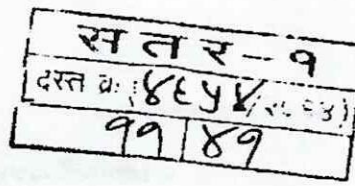 स त र - १
दस्त क्र. ४६५४/
११ ४१